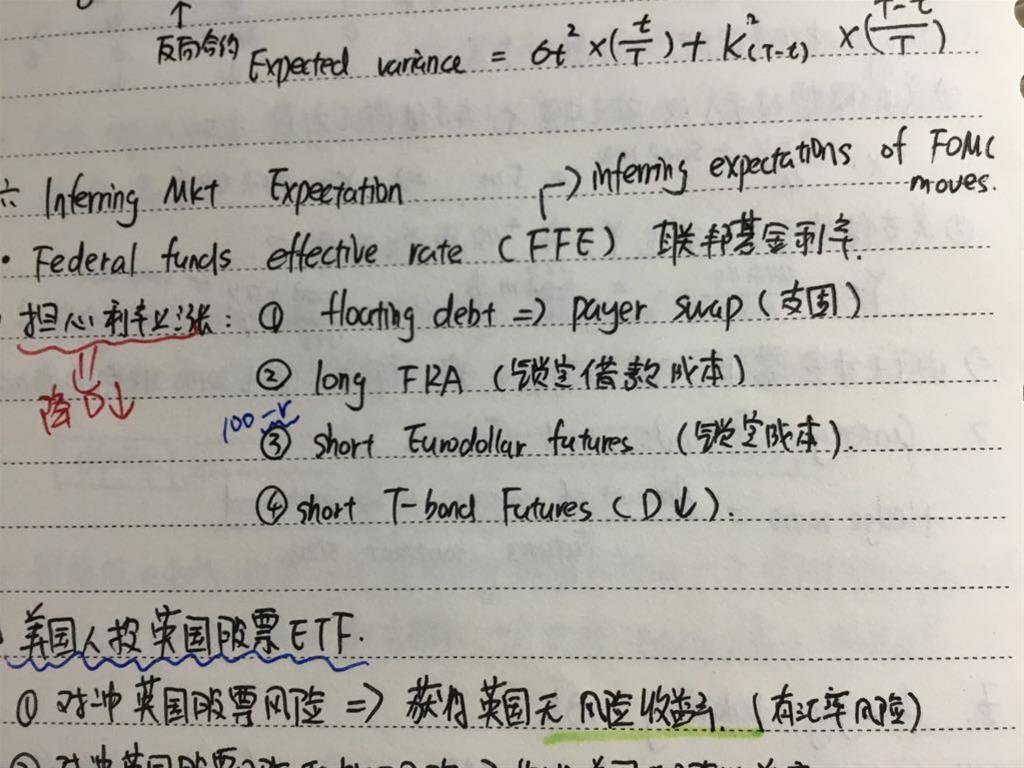 反向合约
Expected variance = σt² ×(t/T) + K²(T-t) ×(T-t/T)
六 Inferring Mkt Expectation → inferring expectations of FOMC moves.
• Federal funds effective rate (FFE) 联邦基金利率.
担心利率上涨: ① floating debt => payer swap (支固)
② long FRA (锁定借款成本)
降D↓
100-r
③ short Eurodollar futures (锁定成本).
④ short T-bond Futures (D↓).
美国人投英国股票ETF.
① 对冲英国股票风险 => 获得英国无风险收益率. (有汇率风险)